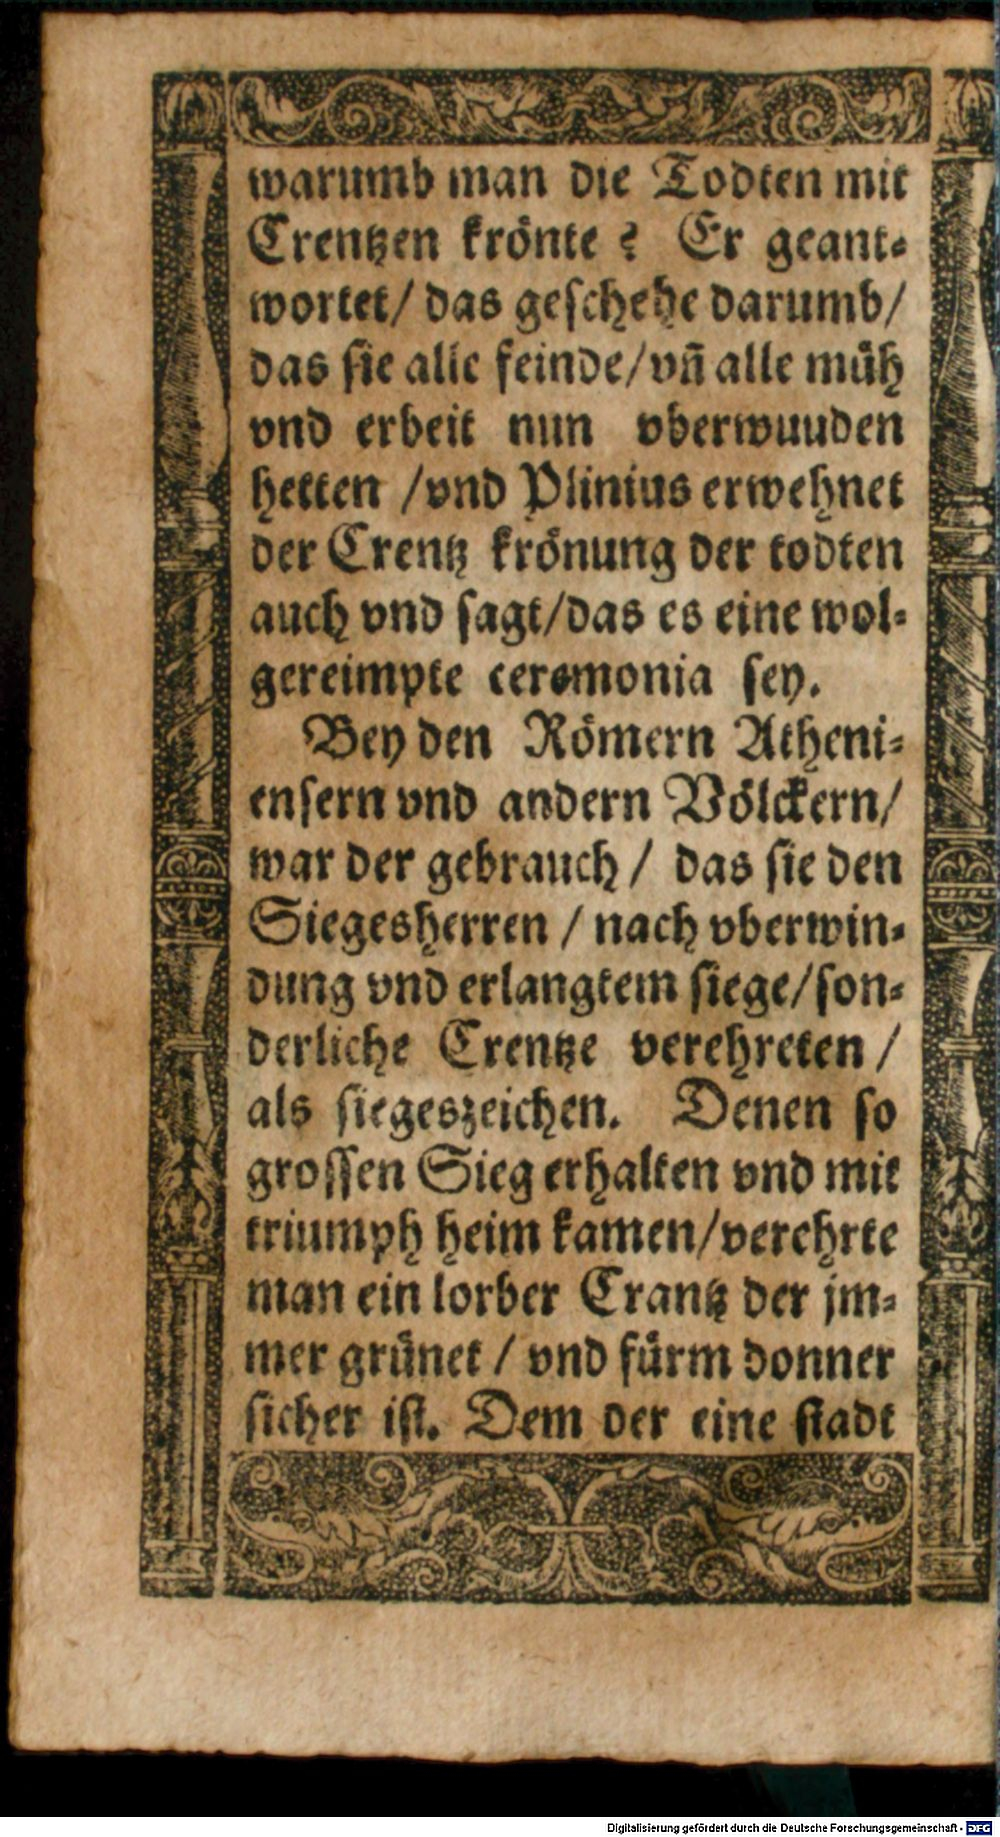 warumb man die Todten mit
Crentzen krönte? Er geant⸗
wortet/ das geschehe darumb/
das sie alle feinde/vn̄ alle můh
vnd erbeit nun vberwuuden
hetten /vnd Plinius erwehnet
der Crentz krönung der todten
auch vnd sagt/das es eine wol⸗
gereimpte ceremonia sey.
Bey den Römern Atheni⸗
ensern vnd andern Völckern/
war der gebrauch / das sie den
Siegesherren / nach vberwin⸗
dung vnd erlangtem siege/son⸗
derliche Crentze verehreten /
als siegeszeichen. Denen so
grossen Sieg erhalten vnd mit
triumph heim kamen/verehrte
man ein lorber Crantz der jm⸗
mer grůnet / vnd fůrm donner
sicher ist. Dem der eine stadt
Digitalisierung gefördert durch die Deutsche Forschungsgemeinschaft - DFG